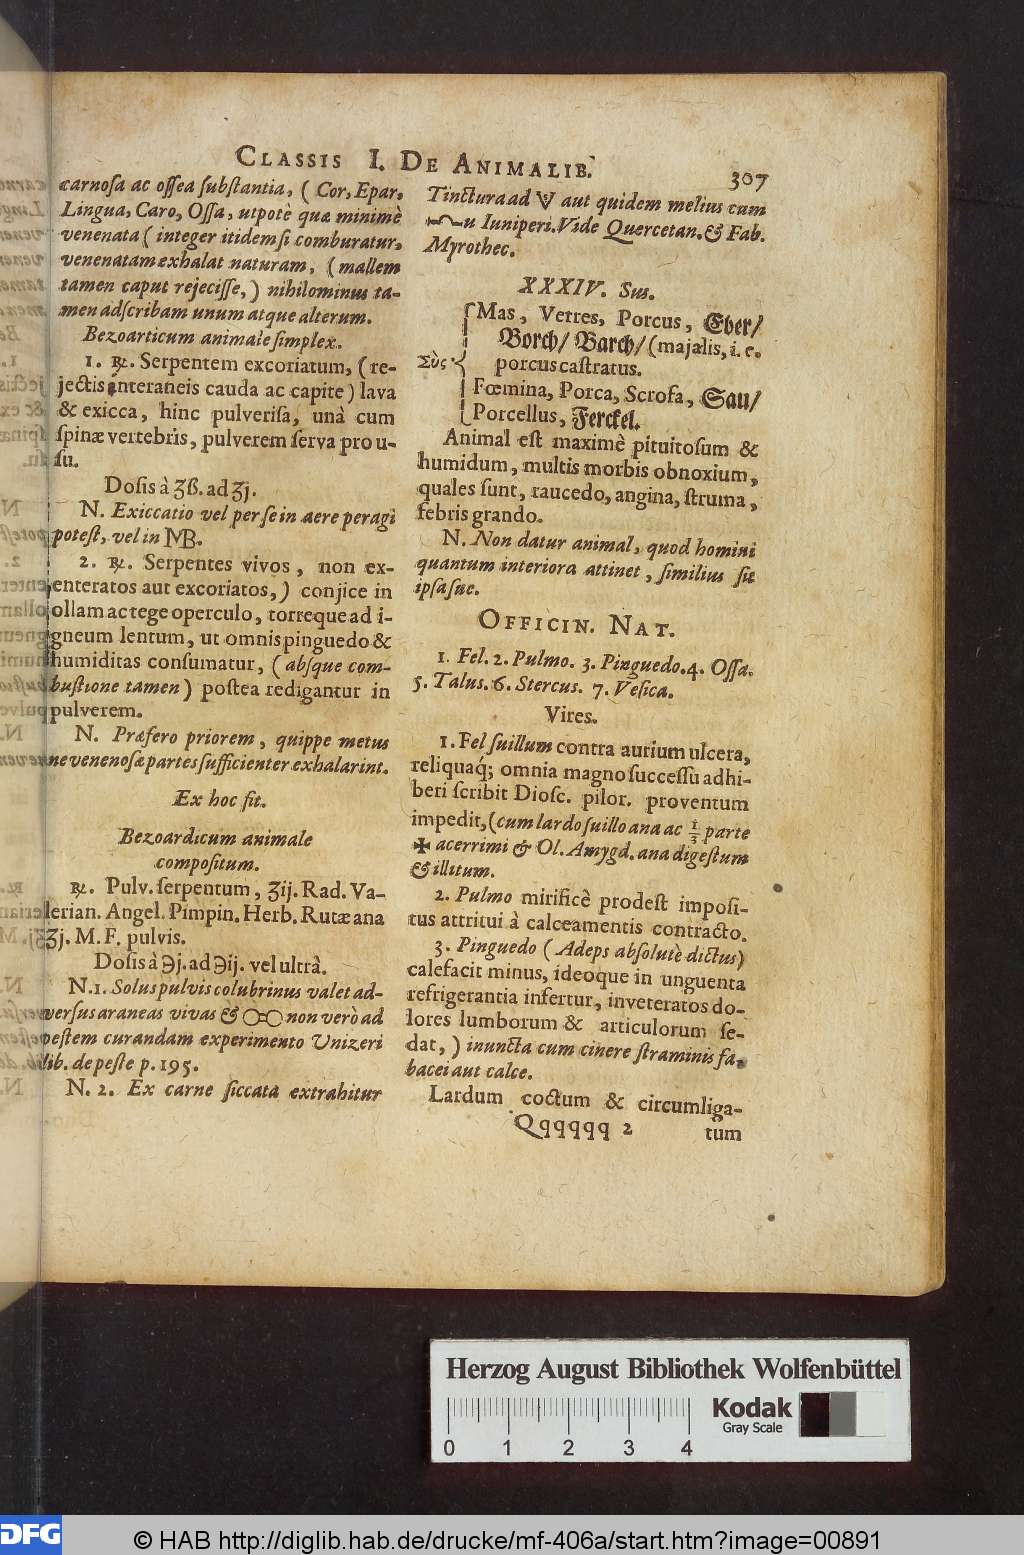 CLASSIS I. DE ANIMALIB.
307
carnosa ac ossea substantia, (Cor, Epar,
Lingua, Caro, Ossa, utpotè quæ minimè
venenata (integer itidem si comburatur,
venenatam exhalat naturam, (mallem
tamen caput rejecisse,) nihilominus ta-
men adscribam unum atque alterum.
Bezoarticum animale simplex.
1. ℞. Serpentem excoriatum, (re-
jectis interaneis cauda ac capite) lava
& exicca, hinc pulverisa, unà cum
spinæ vertebris, pulverem serva pro u-
su.
Dosis à ʒß. ad ʒj.
N. Exiccatio vel per se in aere peragi
potest, vel in MB.
2. ℞. Serpentes vivos, non ex-
enteratos aut excoriatos,) conjice in
ollam ac tege operculo, torreque ad i-
gneum lentum, ut omnis pinguedo &
humiditas consumatur, (absque com-
bustione tamen) postea redigantur in
pulverem.
N. Præfero priorem, quippe metus
ne venenosæ partes sufficienter exhalarint.
Ex hoc fit.
Bezoardicum animale
compositum.
℞. Pulv. serpentum, ʒij. Rad. Va-
lerian. Angel. Pimpin. Herb. Rutæ ana
ʒj. M. F. pulvis.
Dosis à ℈j. ad ℈ij. vel ultrà.
N. 1. Solus pulvis colubrinus valet ad-
versus araneas vivas & non verò ad
pestem curandam experimento Unizeri
lib. de peste p. 195.
N. 2. Ex carne siccata extrahitur
Tinctura ad aut quidem melius cum
u Iuniperi. Vide Quercetan. & Fab.
Myrothec.
XXXIV. Sus.
Mas, Verres, Porcus, Eber/
Borch/ Barch/ (majalis, i. e.
Σὺς porcus castratus.
Fœmina, Porca, Scrofa, Sau/
Porcellus, Ferckel.
Animal est maximè pituitosum &
humidum, multis morbis obnoxium,
quales sunt, raucedo, angina, struma,
febris grando.
N. Non datur animal, quod homini
quantum interiora attinet, similius sit
ipsa sue.
OFFICIN. NAT.
1. Fel. 2. Pulmo. 3. Pinguedo. 4. Ossa.
5. Talus. 6. Stercus. 7. Vesica.
Vires.
1. Fel suillum contra aurium ulcera,
reliquaq́; omnia magno successu adhi-
beri scribit Diosc. pilor. proventum
impedit, (cum lardo suillo ana ac 1/3 parte
✠ acerrimi & Ol. Amygd. ana digestum
& illitum.
2. Pulmo mirificè prodest imposi-
tus attritui à calceamentis contracto.
3. Pinguedo (Adeps absolutè dictus)
calefacit minus, ideoque in unguenta
refrigerantia infertur, inveteratos do-
lores lumborum & articulorum se-
dat,) inuncta cum cinere straminis fa-
bacei aut calce.
Lardum coctum & circumliga-
Qqqqqq 2 tum
Herzog August Bibliothek Wolfenbüttel
0 1 2 3 4
Kodak
Gray Scale
DFG
© HAB http://diglib.hab.de/drucke/mf-406a/start.htm?image=00891